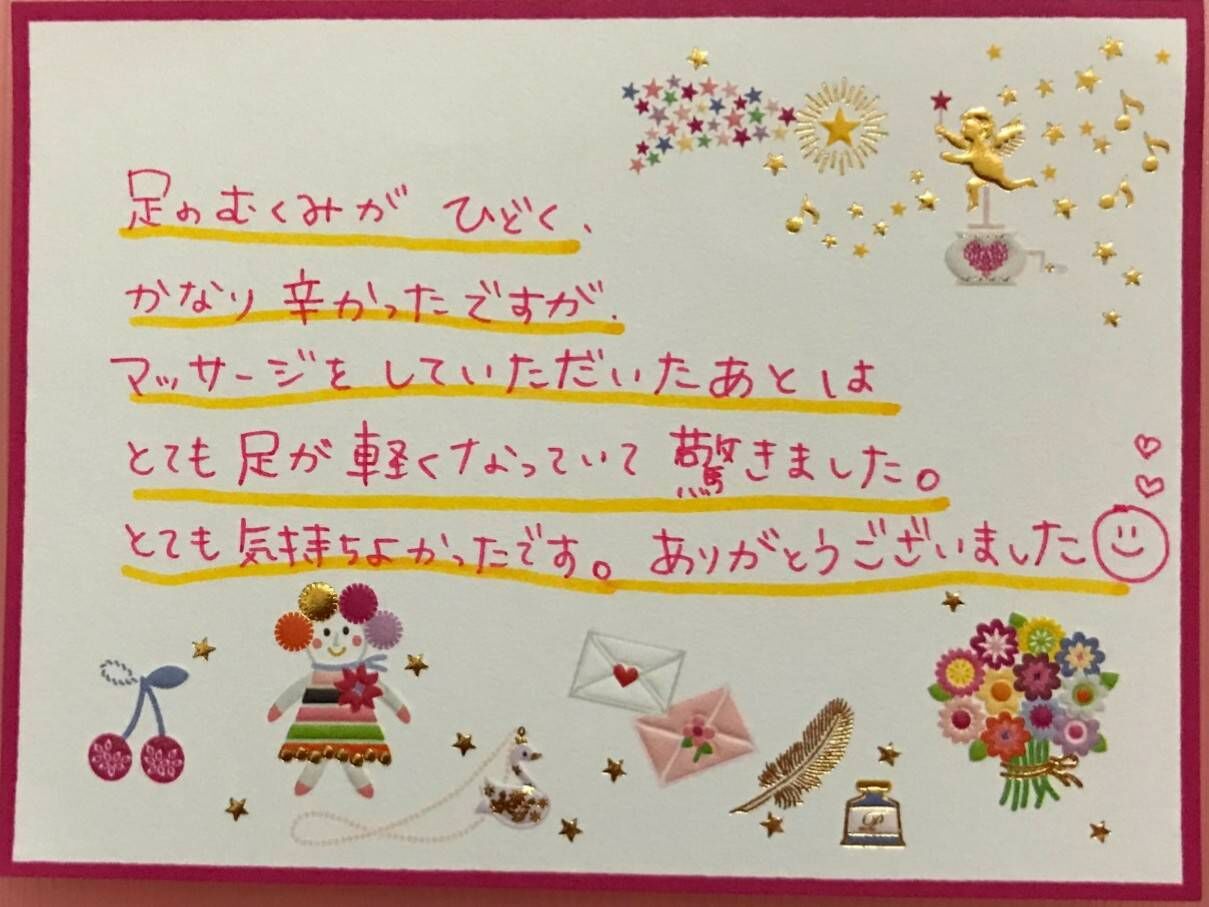 足のむくみが ひどく、
かなり辛かったですが、
マッサージをしていただいたあとは
とても足が軽くなっていて驚きました。
とても気持ちよかったです。ありがとうございました